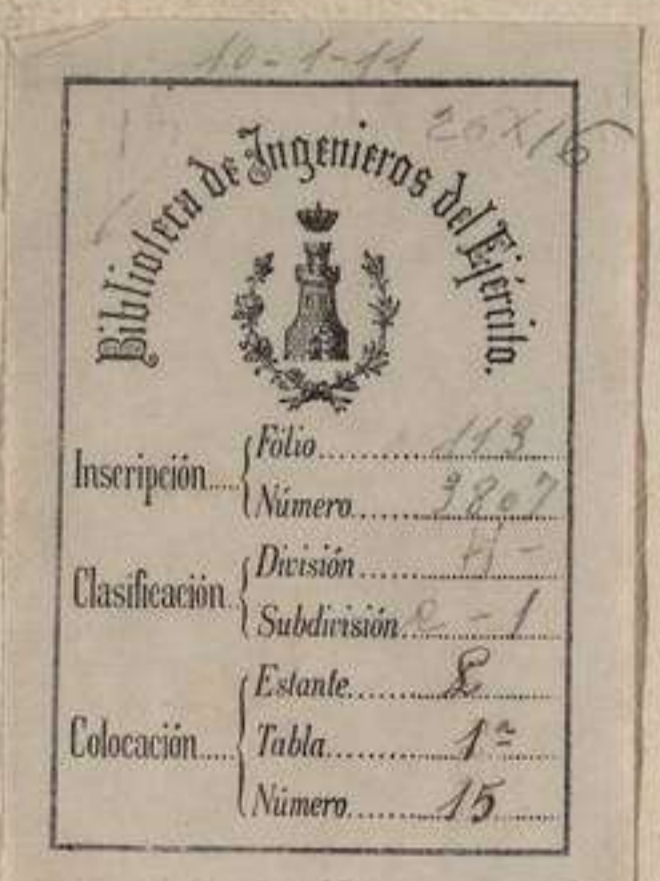 10-1-11
26X16
Biblioteca de Ingenieros del Ejército.
Inscripción..... Fólio.......... 113
Número.......... 3807
Clasificación. División.......... H-
Subdivisión. e-1
Colocación..... Estante.......... L
Tabla.......... 1ª
Número.......... 15